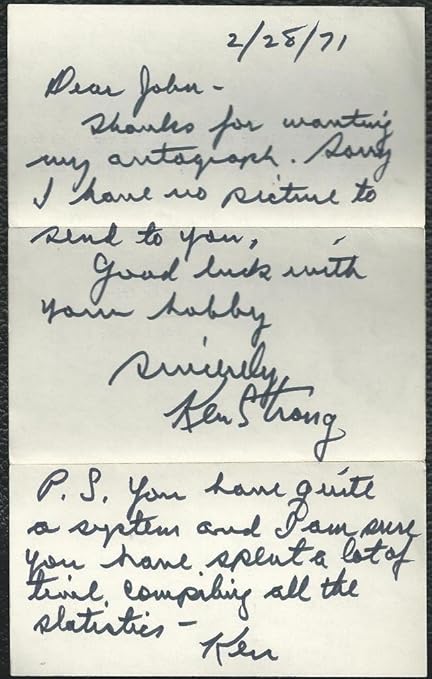 2/28/71
Dear John -
Thanks for wanting
my autograph. Sorry
I have no picture to
send to you.
Good luck with
your hobby
Sincerely,
Ken Strong
P.S. You have quite
a system and I am sure
you have spent a lot of
time compiling all the
statistics -
Ken